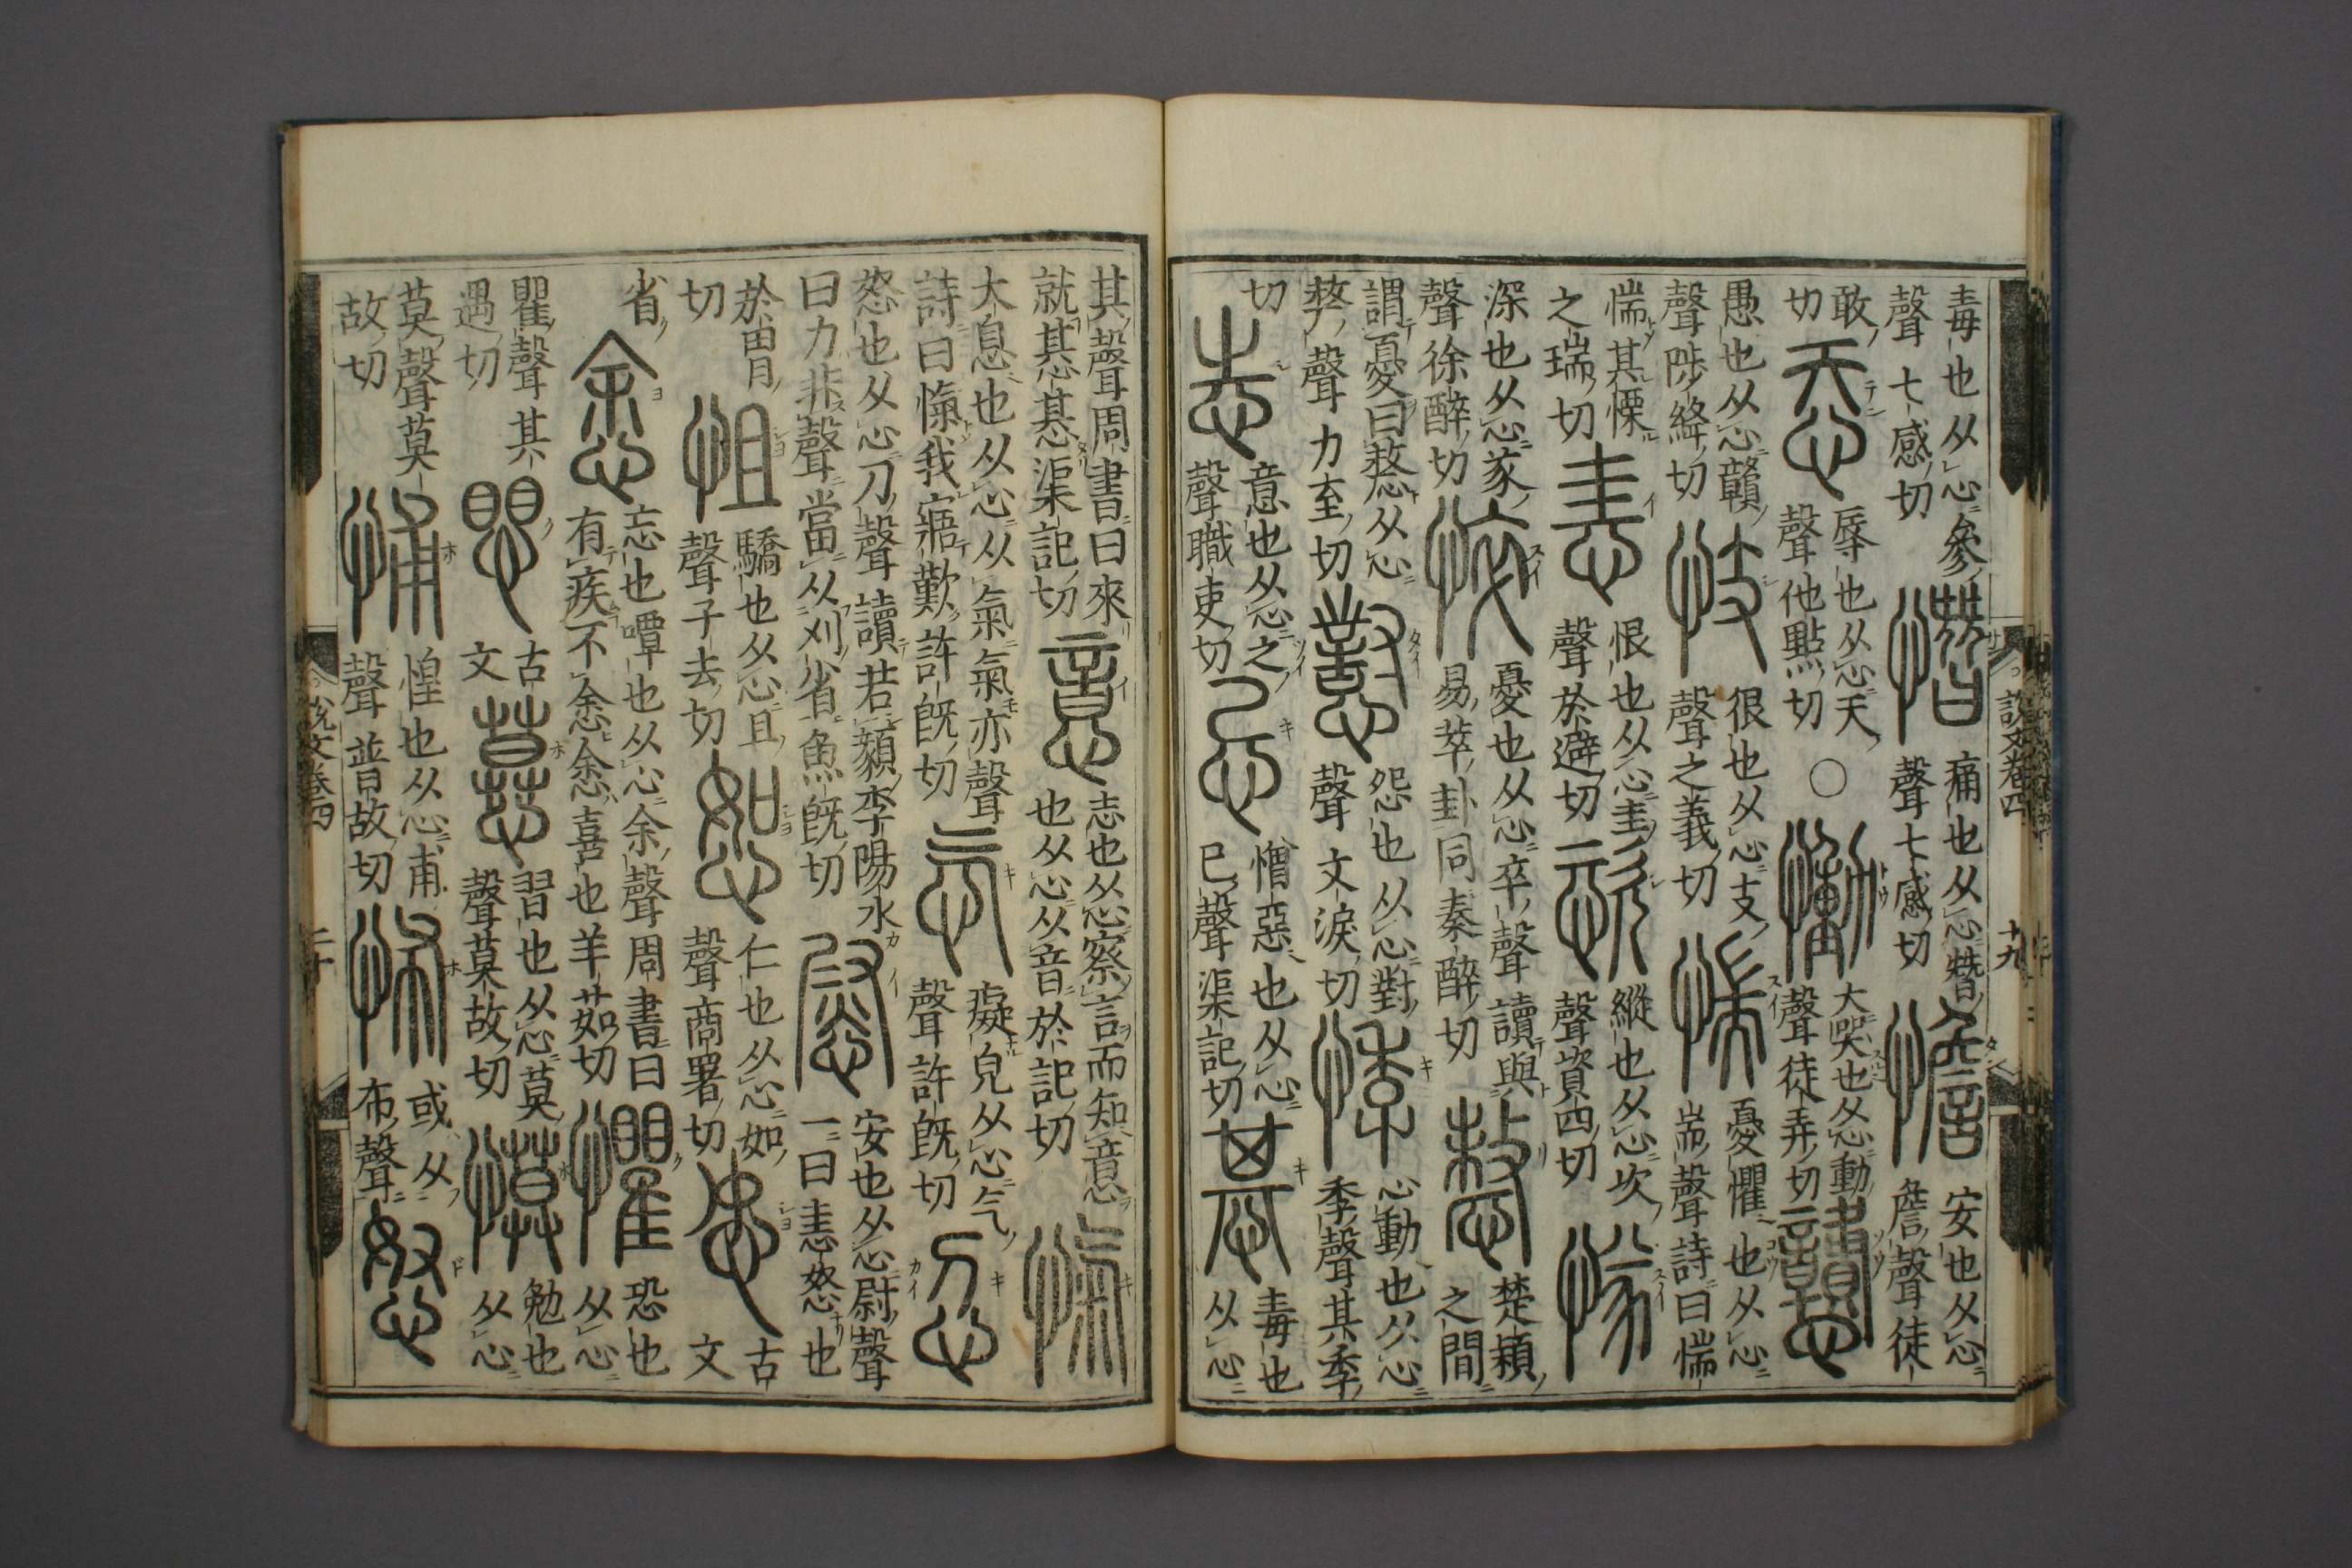 毒也从心參
聲七感切
憯
痛也从心朁
聲七感切
憺
安也从心
詹聲徒
敢
切
忝
辱也从心天
聲他點切
○
慟
大哭也从心動
聲徒弄切
戇
愚也从心贛
聲陟絳切
忮
很也从心支
聲之義切
惴
憂懼也从心
耑聲詩曰惴
惴其慄
之瑞切
恚
恨也从心圭
聲於避切
恣
縱也从心次
聲資四切
㒸
深也从心㒸
聲徐醉切
悴
憂也从心卒聲讀與
易萃卦同秦醉切
𢟤
楚潁
之間
謂憂曰𢟤从心
𠩺聲力至切
懟
怨也从心對
聲文淚切
悸
心動也从心
季聲其季
切
志
意也从心之
聲職吏切
忌
憎惡也从心
已聲渠記切
惎
毒也
从心
說文卷四
十九
其聲周書曰來
就惎惎渠記切
意
志也从心察言而知意
也从心从音於記切
愾
大息也从心从氣氣亦聲
詩曰愾我寤歎許旣切
忥
癡皃从心气
聲許旣切
㣻
怒也从心刀聲讀若顡李陽氷
曰刀非聲當从刈省魚旣切
慰
安也从心尉聲
一曰恚怒也
於胃
切
怚
驕也从心且
聲子去切
恕
仁也从心如
聲商署切
㣽
古
文
省
悆
忘也嘾也从心余聲周書曰
有疾不悆悆喜也羊茹切
懼
恐也
从心
瞿聲其
遇切
古
文
慕
習也从心莫
聲莫故切
慔
勉也
从心
莫聲莫
故切
悑
惶也从心甫
聲普故切
怖
或从
布聲
怒
說文卷四
二十